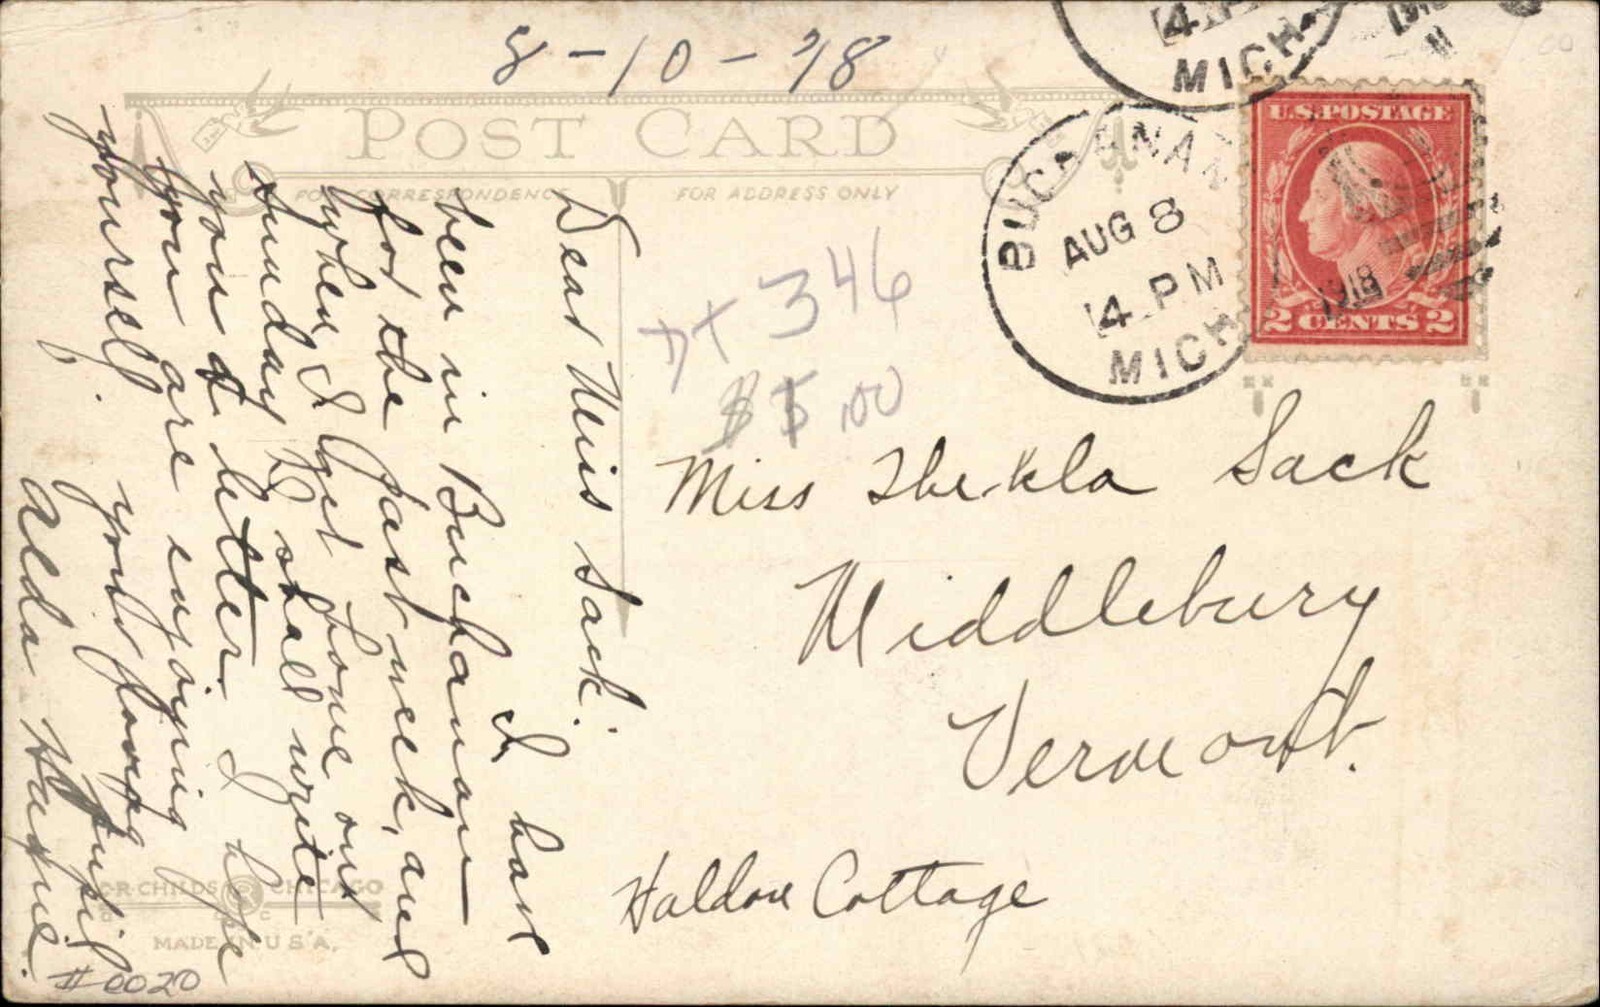 8-10-78
POST CARD
FOR CORRESPONDENCE
FOR ADDRESS ONLY
U.S. POSTAGE
2 CENTS 2
BUCHANAN
AUG 8
4 PM
1918
MICH.
4 P
MICH.
1918
M
346
$5.00
Miss Thekla Sack
Middlebury
Vermont.
Haldon Cottage
Dear Miss Sack.
I have
been in Buchanan
for the past week, and
when I get home on
Sunday I shall write
you a letter. I hope
you are enjoying
yourself.
your loving
pupil
Alda
C.R. CHILDS CHICAGO
MADE IN U.S.A.
#0020